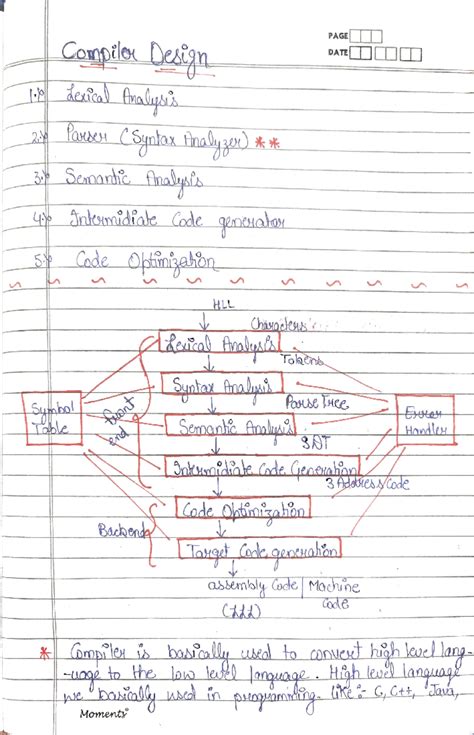 PAGE
DATE
Compiler Design
1. Lexical Analysis
2. Parser (Syntax Analyzer) **
3. Semantic Analysis
4. Intermidiate Code generator
5. Code Optimization
HLL
Characters
Lexical Analysis
Tokens
Syntax Analysis
Parse Tree
Symbol Table
front end
Semantic Analysis
Error Handler
SDT
Intermidiate Code Generation
3 Address Code
Code Optimization
Backend
Target Code generation
assembly Code | Machine Code
(LLL)
* Compiler is basically used to convert high level lang-
-uage to the low level language. High level language
we basically used in programming. like :- C, C++, Java,
Moments